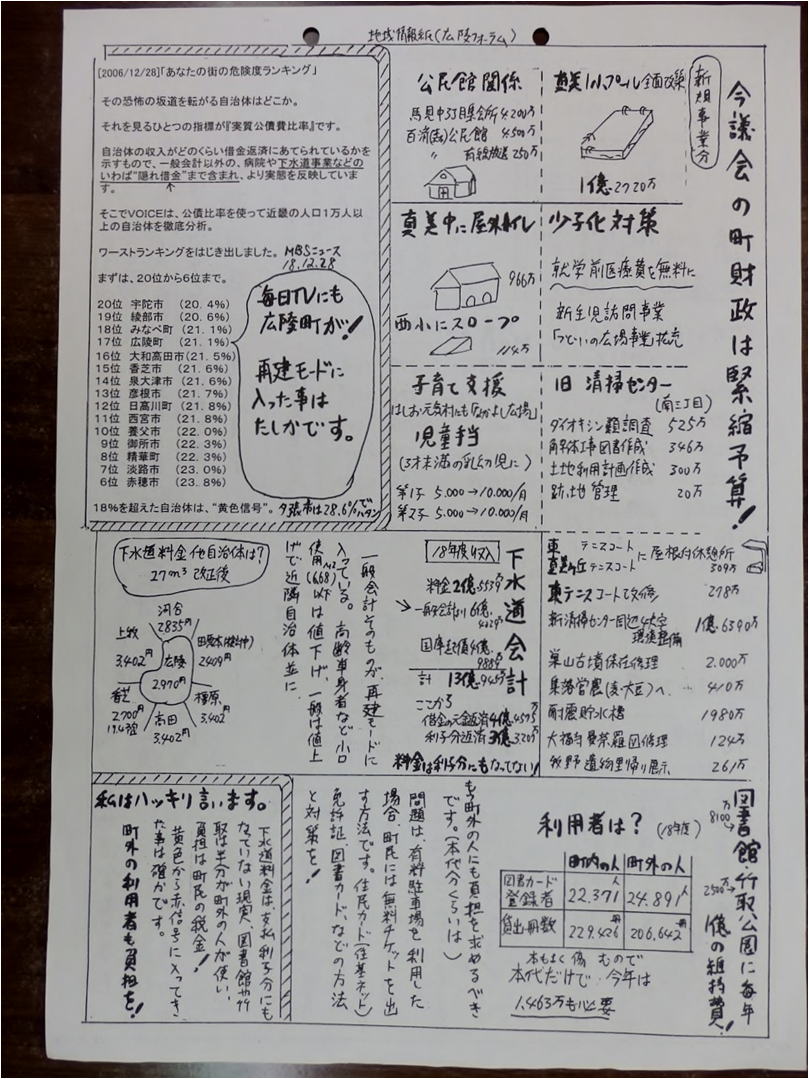 地域情報紙(広陵フォーラム)
今議会の町財政は緊縮予算!
新規事業分
1億.2720万
公民館関係
馬見中3丁目集会所 4.200万
公民館 4.500万
〃 250万
少子化対策
就学前医療費を無料に
新生児訪問事業
「つどいの広場事業」拡充
真美中に屋外トイレ
966万
西小にスロープ
114万
旧 清掃センター
(南三丁目)
ダイオキシン類調査 525万
解体工事図書作成 346万
土地利用計画作成 300万
跡地管理 20万
子育て支援
はしお元気村にも「なかよし広場」
児童手当
(3才未満の乳幼児に)
第1子 5.000→10.000/月
第2子 5.000→10.000/月
[2006/12/28]「あなたの街の危険度ランキング」
その恐怖の坂道を転がる自治体はどこか。
それを見るひとつの指標が『実質公債費比率』です。
自治体の収入がどのくらい借金返済にあてられているかを
示すもので、一般会計以外の、病院や下水道事業などの
いわば“隠れ借金”まで含まれ、より実態を反映していま
す。
そこでVOICEは、公債比率を使って近畿の人口1万人以
上の自治体を徹底分析。
ワーストランキングをはじき出しました。 MBSニュース
18.12.28
まずは、20位から6位まで。
20位 宇陀市 (20.4%)
19位 綾部市 (20.6%)
18位 みなべ町 (21.1%)
17位 広陵町 (21.1%)
16位 大和高田市(21.5%)
15位 香芝市 (21.6%)
14位 泉大津市 (21.6%)
13位 彦根市 (21.7%)
12位 日高川町 (21.8%)
11位 西宮市 (21.8%)
10位 養父市 (22.0%)
9位 御所市 (22.3%)
8位 精華町 (22.3%)
7位 淡路市 (23.0%)
6位 赤穂市 (23.8%)
毎日TVにも
広陵町が!
再建モードに
入った事は
たしかです。
18%を超えた自治体は、“黄色信号”。夕張市は28.6%で
東 テニスコート
真美ヶ丘テニスコート に屋根付休憩所
309万
東テニスコートで改修 278万
新清掃センター周辺4大字
環境整備 1億.6390万
巣山古墳保存修理 2.000万
集落営農(麦・大豆)へ … 410万
耐震貯水槽 1980万
大福寺曼荼羅図修理 124万
牧野遺物里帰り展示 261万
下水道会計
18年度収入
料金 2億.5539万
計 13億.9454万
ここから
借金の元金返済 4億.4575万
利子分返済 3億.3205万
料金は利子分にもなってない!
一般会計そのものが、再建モードに
入っている。高齢単身者など小口
使用(668)以下は値下げ、一般は値上
げで近隣自治体並に.
下水道料金 他自治体は?
27m³ 改正後
河合
2835円
上牧
3.402円
広陵
2.970円
田原本
2409円
香芝
2700円
高田
3.402円
橿原
3.402円
図書館・竹取公園に毎年
1億の維持費!
8100万→
2500万→
利用者は?
(18年度)
町内の人 町外の人
図書カード
登録者 22.371人 24.891人
貸出冊数 229.426冊 206.642冊
本もよく傷むもので
本代だけで 今年は
1.463万も必要
もっと町外の人にも負担を求めるべき
です。(本代分くらいは)
問題は、有料駐車場を利用した
場合、町民には無料チケットを出
す方法です。住民カード(住基ネット)
免許証、図書カード、などの方法
と対策を!
私はハッキリ言います。
下水道料金は、支払利子分にも
なっていない現実、図書館や竹
取は半分が町外の人が使い、
負担は町民の税金!
黄色から赤信号に入ってき
た事は確かです。
町外の利用者も負担を!